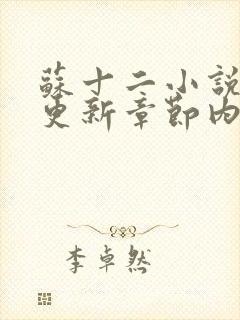 蘇十二小說
更新章節內
李卓然